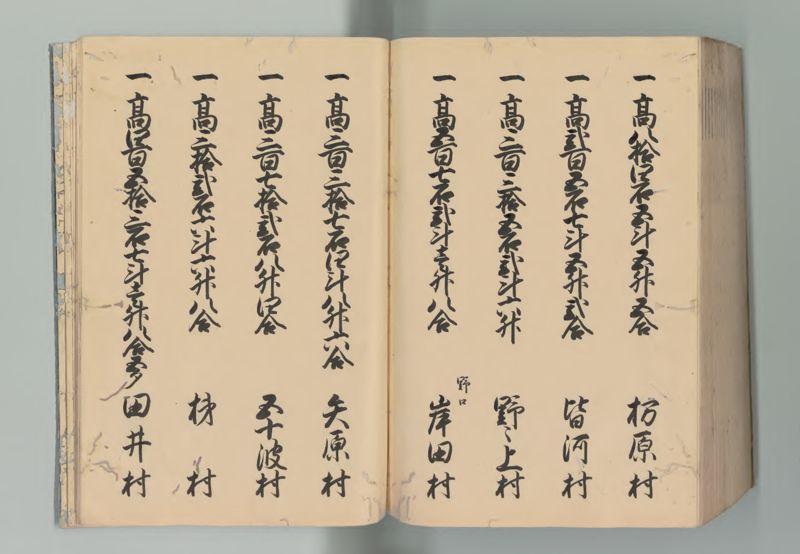 一 高八拾四石五斗五升五合 枋原村
一 高弐百五石七斗五升弐合 皆河村
一 高三百三拾五石弐斗六升 野々上村
一 高五百七石弐斗壱升八合 野口 岸田村
一 高三百三拾七石四斗八升六合 矢原村
一 高三百七拾弐石八升四合 五十波村
一 高三拾弐石六斗六升八合 梯村
一 高四百五拾三石七斗壱升八合五夕 田井村